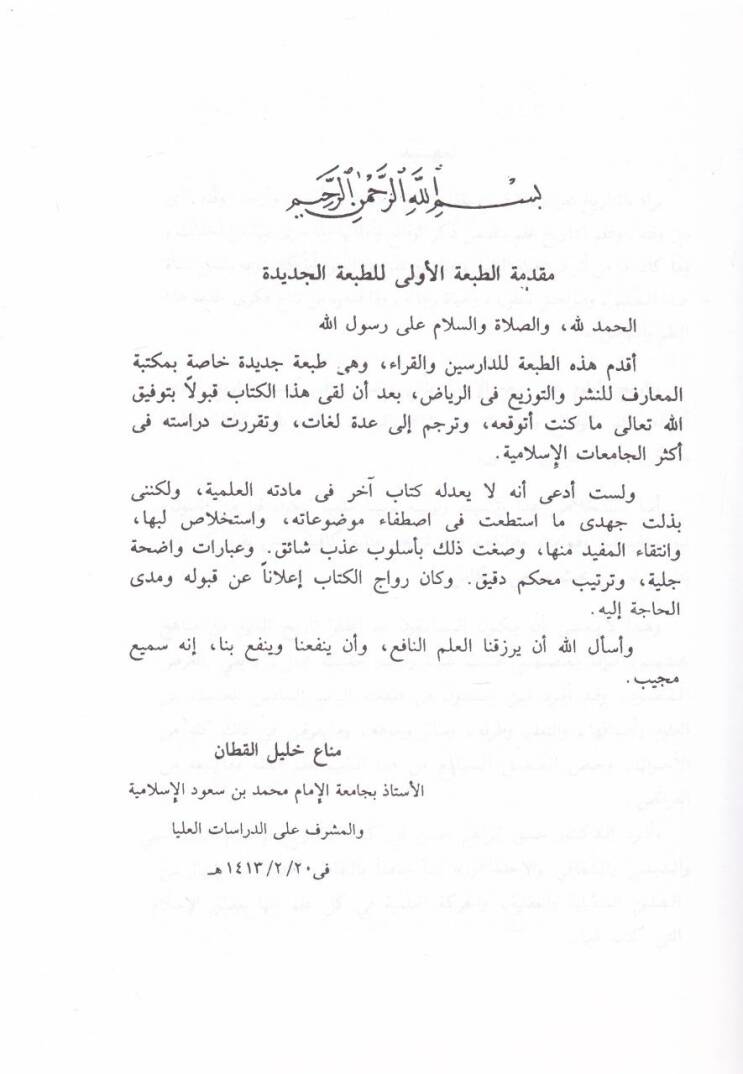 بسم الله الرحمن الرحيم
مقدمة الطبعة الأولى للطبعة الجديدة
الحمد لله، والصلاة والسلام على رسول الله
أقدم هذه الطبعة للدارسين والقراء، وهى طبعة جديدة خاصة بمكتبة
المعارف للنشر والتوزيع فى الرياض، بعد أن لقى هذا الكتاب قبولاً بتوفيق
الله تعالى ما كنت أتوقعه، وترجم إلى عدة لغات، وتقررت دراسته فى
أكثر الجامعات الإسلامية.
ولست أدعى أنه لا يعدله كتاب آخر فى مادته العلمية، ولكننى
بذلت جهدى ما استطعت فى اصطفاء موضوعاته، واستخلاص لبها،
وانتقاء المفيد منها، وصغت ذلك بأسلوب عذب شائق. وعبارات واضحة
جلية، وترتيب محكم دقيق. وكان رواج الكتاب إعلاناً عن قبوله ومدى
الحاجة إليه.
وأسأل الله أن يرزقنا العلم النافع، وأن ينفعنا وينفع بنا، إنه سميع
مجيب.
مناع خليل القطان
الأستاذ بجامعة الإمام محمد بن سعود الإسلامية
والمشرف على الدراسات العليا
فى ٢٠/ ٢/ ١٤١٣ هـ